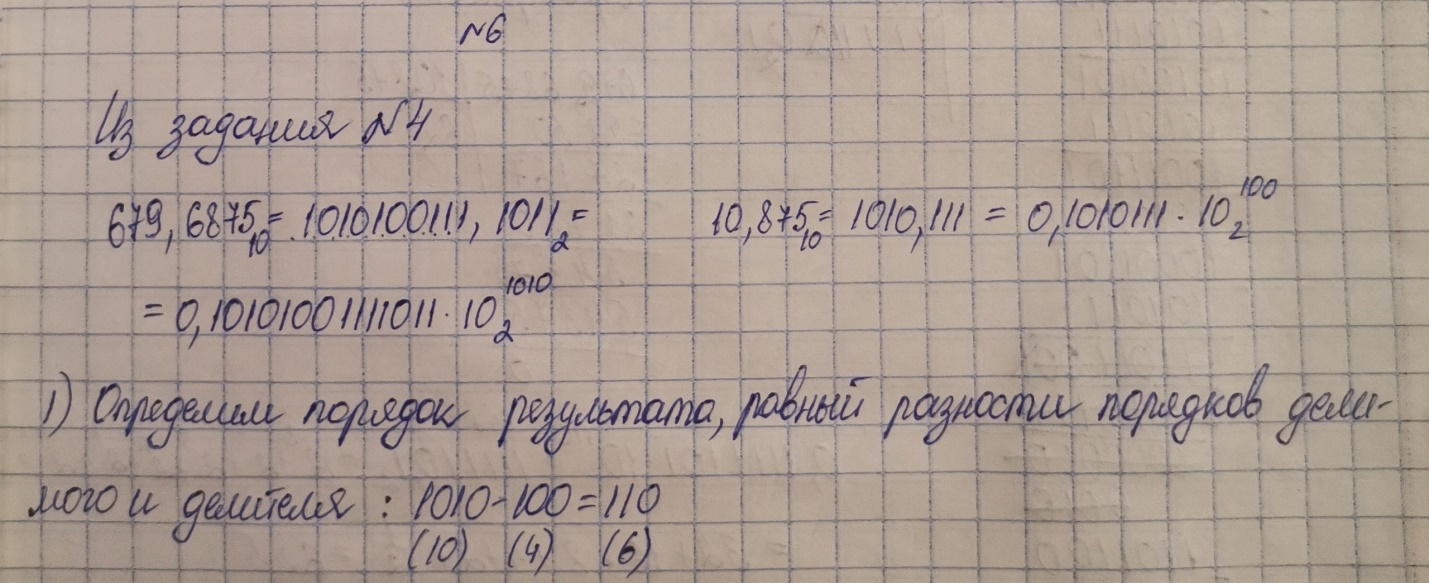 №6
Из задания №4
679,6875₁₀ = 1010100111,1011₂ = 10,875₁₀ = 1010,111 = 0,1010111 · 10₂¹⁰⁰
= 0,10101001111011 · 10₂¹⁰¹⁰
1) Определим порядок результата, равный разности порядков дели-
мого и делителя : 1010-100=110
(10) (4) (6)